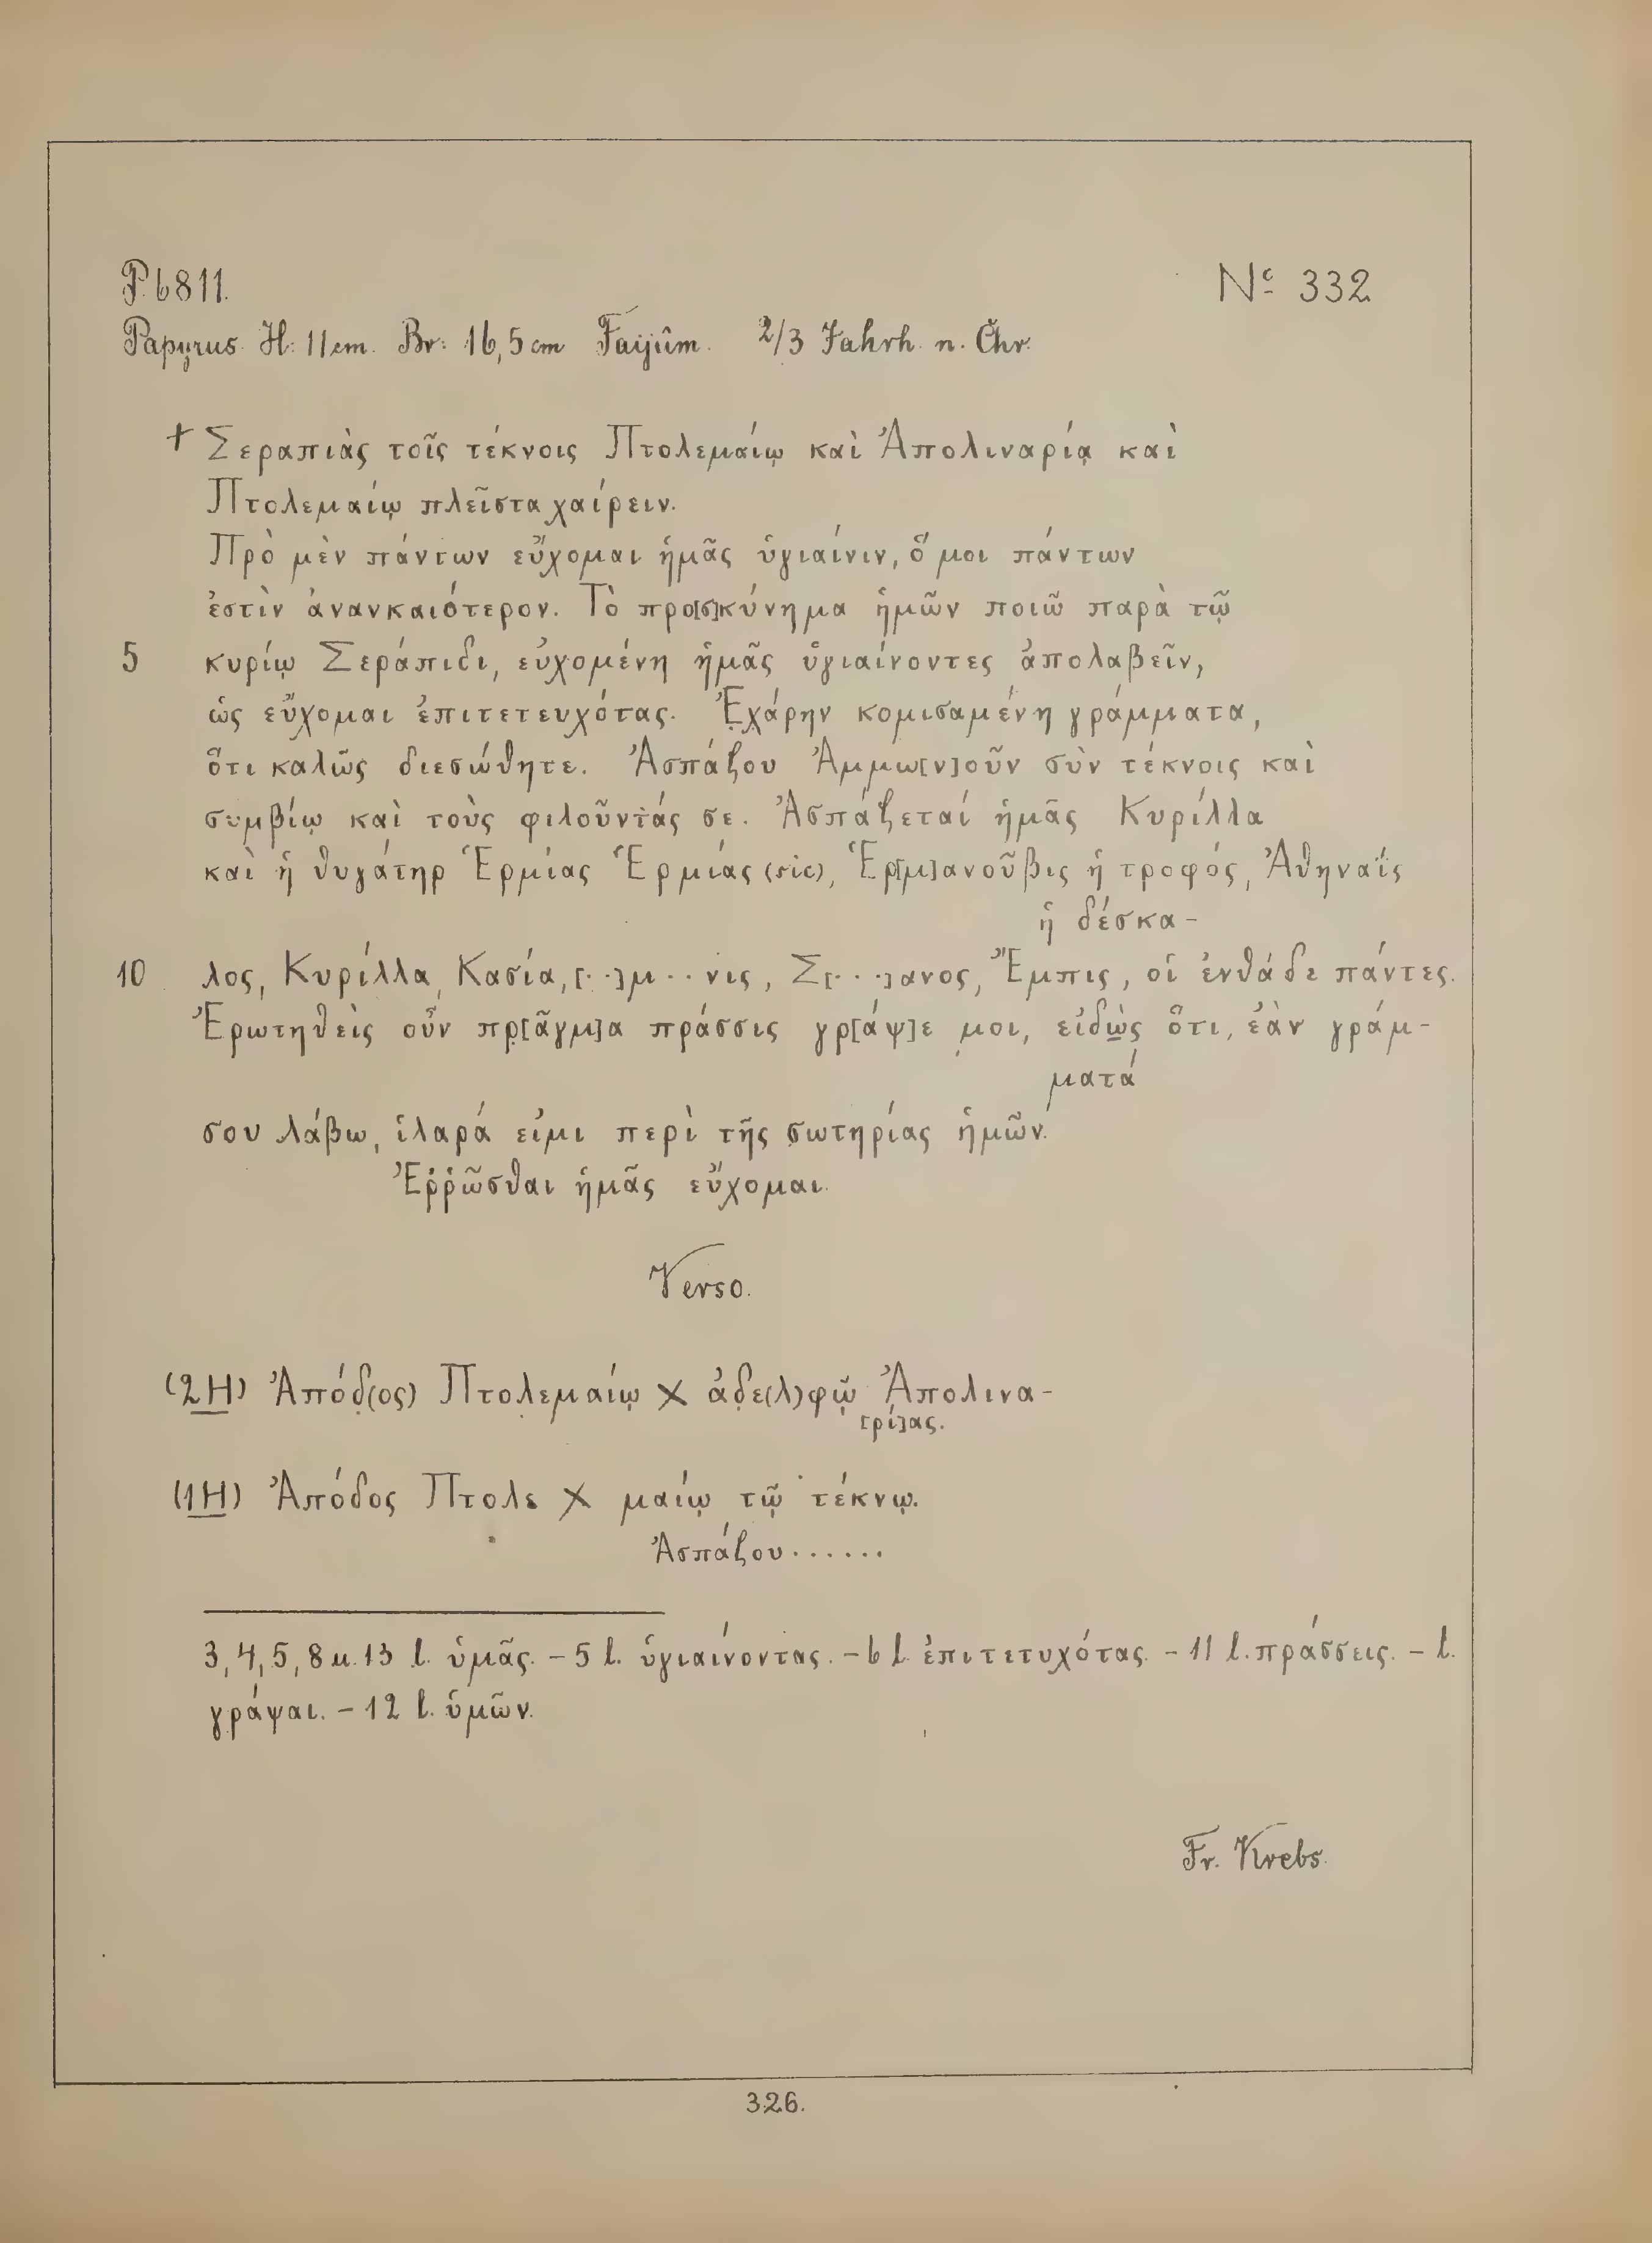 P. 6811. № 332
Papyrus. H: 11 cm. Br: 16,5 cm Faijûm. 2/3 Jahrh. n. Chr.
+ Σεραπιὰς τοῖς τέκνοις Πτολεμαίῳ καὶ Ἀπολιναρίᾳ καὶ
Πτολεμαίῳ πλεῖστα χαίρειν.
Πρὸ μὲν πάντων εὔχομαι ἡμᾶς ὑγιαίνιν, ὅ μοι πάντων
ἐστὶν ἀνανκαιότερον. Τὸ προ[σ]κύνημα ἡμῶν ποιῶ παρὰ τῷ
5 κυρίῳ Σεράπιδι, εὐχομένη ἡμᾶς ὑγιαίνοντες ἀπολαβεῖν,
ὡς εὔχομαι ἐπιτετευχότας. Ἐχάρην κομισαμένη γράμματα,
ὅτι καλῶς διεσώθητε. Ἀσπάζου Ἀμμω[ν]οῦν σὺν τέκνοις καὶ
συμβίῳ καὶ τοὺς φιλοῦντάς σε. Ἀσπάζεταί ἡμᾶς Κυρίλλα
καὶ ἡ θυγάτηρ Ἑρμίας Ἑρμίας (sic), Ἑρ[μ]ανοῦβις ἡ τροφός, Ἀθηναΐς
ἡ δέσκα-
10 λος, Κυρίλλα, Κασία, [··]μ··νις, Σ[···]ανος, Ἔμπις, οἱ ἐνθάδε πάντες.
Ἐρωτηθεὶς οὖν πρ[ᾶγμ]α πράσσις γρ[άψ]ε μοι, εἰδὼς ὅτι, ἐὰν γράμ-
ματά
σου λάβω, ἱλαρά εἰμι περὶ τῆς σωτηρίας ἡμῶν.
Ἐῤῥῶσθαι ἡμᾶς εὔχομαι.
Verso.
(2H) Ἀπόδ(ος) Πτολεμαίῳ X ἀδε(λ)φῷ Ἀπολινα-
[ρί]ας.
(1H) Ἀπόδος Πτολε X μαίῳ τῷ τέκνῳ.
Ἀσπάζου······
3, 4, 5, 8 u. 13 l. ὑμᾶς. – 5 l. ὑγιαίνοντας. – 6 l. ἐπιτετυχότας. – 11 l. πράσσεις. – l.
γράψαι. – 12 l. ὑμῶν.
Fr. Krebs.
326.